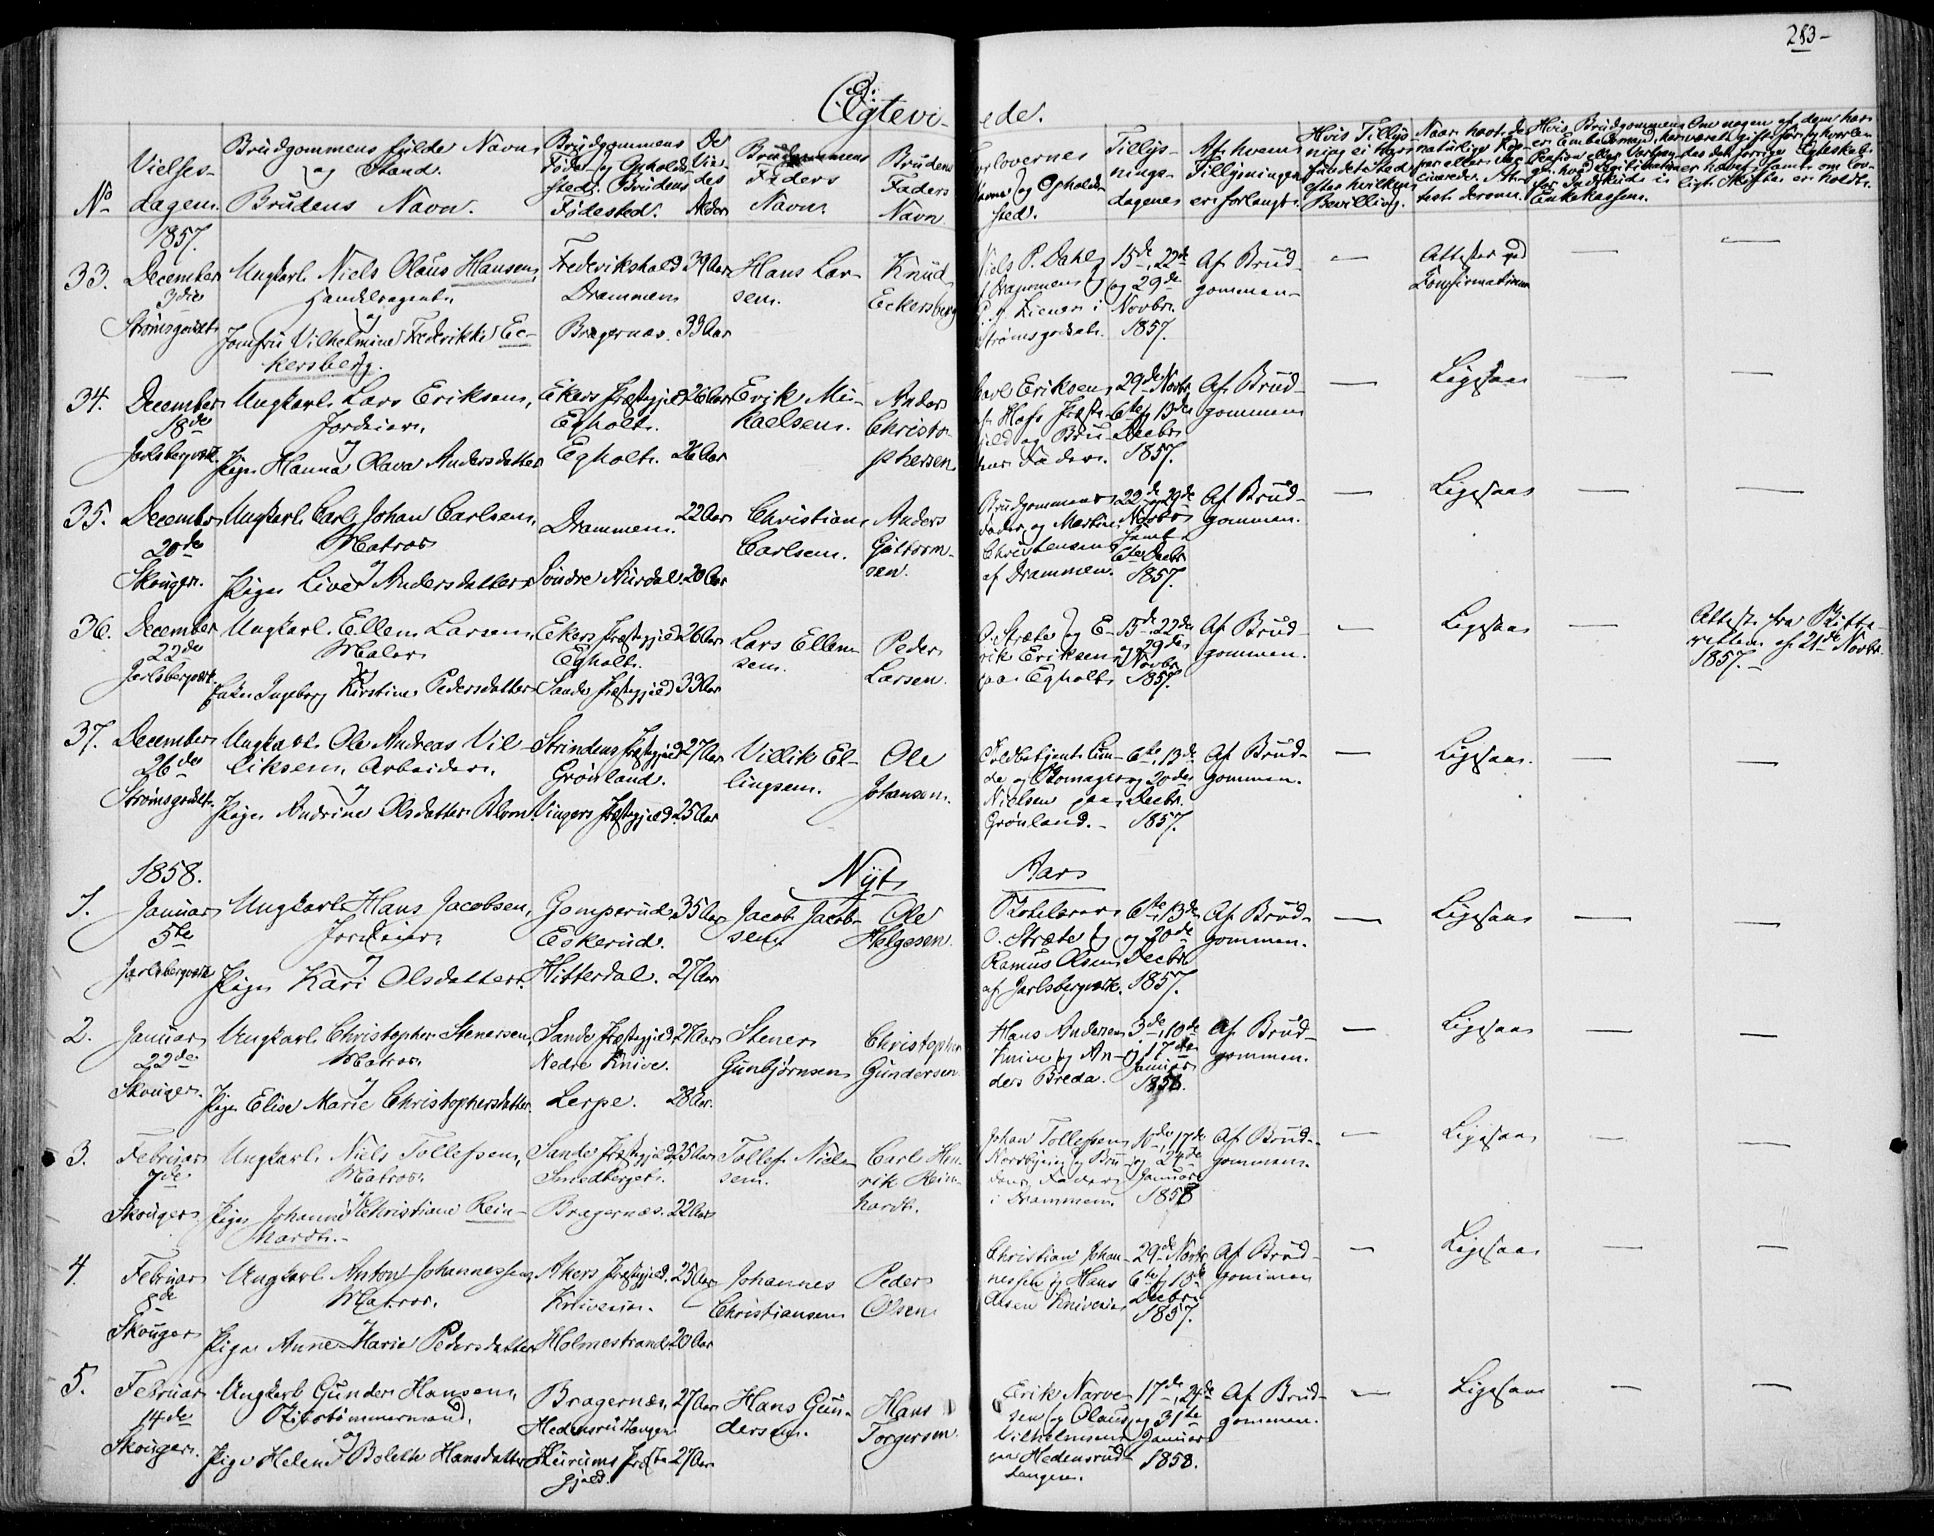 283-
Ægtevi- ede.
No
Vielses-
dagen.
Brudgommens fulde Navn
og Stand.
Brudens Navn.
Brudgommens
Føde- og Opholds-
sted. Brudens
Fødested.
De
Vie-
des
Alder.
Brudgommens
Faders
Navn.
Brudens
Faders
Navn.
Forlovernes
Navne og Opholds-
sted.
Tillys-
nings-
dagene
Af hvem
Tillysningen
er forlangt.
1857.
33. December
3die
Strømsgodset.
Ungkarl Niels Olaus Hansen,
Handelsagent.
og
Jomfru Vilhelmine Fredrikke Ec-
kersberg.
Frederikshald
Drammen
Bragernæs.
39 Aar
33 Aar
Hans Lar-
sen.
Knud
Eckersberg
Niels P. Dahl
af Drammen og
i
Strømsgodset.
15de, 22de
og 29de
Novbr.
1857.
Af Brud-
gommen
—
Attester ved
Confirmationen
—
—
34. December
18de
Jarlsbergværk.
Ungkarl Lars Eriksen,
Jordeier.
og
Pige Hanna Olava Andersdatter
Ekers Præstegjeld
Egholt.
Egholt.
26 Aar
26 Aar
Erik Mi-
kaelsen.
Anders
Christo-
phersen
Carl Eriksen
af Hofs Præste-
gjeld og Bru-
dens Fader.
29de Novbr.
6te, 13de
Decbr.
1857.
Af Brud-
gommen
—
Ligesaa
—
—
35. December
20de
Skouger.
Ungkarl Carl Johan Carlsen,
Matros
og
Pige Live Andersdatter
Drammen.
Søndre Aurdal.
22 Aar
20 Aar
Christian
Carlsen.
Anders
Guttorm-
sen.
Brudgommens
Fader og Martin
Christensen
af Drammen.
22de og 29de
Novbr.
samt
6te Decbr.
1857.
Af Brud-
gommen.
—
Ligesaa
—
—
36. December
22de
Jarlsbergværk.
Ungkarl Ellen Larsen,
Maler
og
Enke Ingeborg Kirstine Pedersdatter
Ekers Præstegjeld
Egholt.
Sande Præstegjeld
26 Aar
33 Aar
Lars Ellen-
sen.
Peder
Larsen.
O. Stræte og E-
rik Eriksen
paa Egholt
15de, 22de
og 29de
Novbr.
1857.
Af Brud-
gommen.
—
Ligesaa
—
Attest fra Skifte-
retten af 21de Novbr.
1857.
37. December
26de
Strømsgodset.
Ungkarl Ole Andreas Vil-
liksen, Arbeider.
og
Pige Andrine Olsdatter Blom.
Strindens Præstegjeld
Grønland.
Vingers Præstegjeld.
27 Aar
25 Aar
Villik El-
lingsen.
Ole
Johansen.
Toldbetjent Lun-
de og Skomager
Nielsen paa
Grønland.
6te, 13de
og 20de
Decbr.
1857.
Af Brud-
gommen.
—
Ligesaa.
—
—
1858. Nyt Aar
1. Januar
5te
Jarlsbergværk
Ungkarl Hans Jacobsen,
Jordeier
og
Pige Kari Olsdatter.
Gomperud
Eskerud.
Hitterdal.
35 Aar
27 Aar
Jacob Jacob-
sen
Ole
Helgesen.
Skolelærer
O. Stræte og
Ramus Olsen
af Jarlsbergværk.
6te, 13de
og 20de
Decbr.
1857.
Af Brud-
gommen.
—
Ligesaa
—
—
2. Januar
22de
Skouger.
Ungkarl Christopher Stenersen,
Matros
og
Pige Elise Marie Christophersdatter.
Sande Præstegjeld.
Nedre Knive.
Lerpe.
27 Aar
28 Aar.
Stener
Gunbjørnsen
Christopher
Gundersen.
Hans Andersen
Knive og An-
ders Breda.
3de, 10de
og 17de
Januar
1858.
Af Brud-
gommen.
—
Ligesaa
—
—
3. Februar
7de
Skouger
Ungkarl Niels Tollefsen,
Matros.
og
Pige Johanne Christiane Rein-
hardt.
Sande Præstegjeld,
Smedberget.
Bragernæs.
25 Aar
22 Aar
Tollef Niel-
sen.
Carl Hen-
rik Rein-
hardt.
Johan Tollefsen
Nordbyeng og Bru-
dens Fader
i Drammen.
10de, 17de
og 24de
Januar
1858
Af Brud-
gommen.
—
Ligesaa
—
—
4. Februar
8de
Skouger
Ungkarl Anton Johannessen,
Matros.
og
Pige Anne Marie Pedersdatter
Akers Præstegjeld.
Kniveien.
Holmestrand.
25 Aar
20 Aar
Johannes
Christiansen
Peder
Olsen
Christian Johan-
nessen og Hans
Olsen Kniveien
29de Novbr.
6te, 13de
Decbr.
1857.
Af Brud-
gommen
—
Ligesaa
—
—
5. Februar
14de
Skouger.
Ungkarl Gunder Hansen,
Skibstømmermand,
og
Pige Helene Bolette Hansdatter
Bragernæs,
Hedensrudtangen
Skurums Præste-
gjeld.
27 Aar
27 Aar
Hans Gun-
dersen.
Hans
Torgersen
Erik Narve-
sen og Olaus
Vilhelmsen
paa Hedensrud-
tangen.
17de, 24de
og 31te
Januar
1858.
Af Brud-
gommen.
—
Ligesaa
—
—